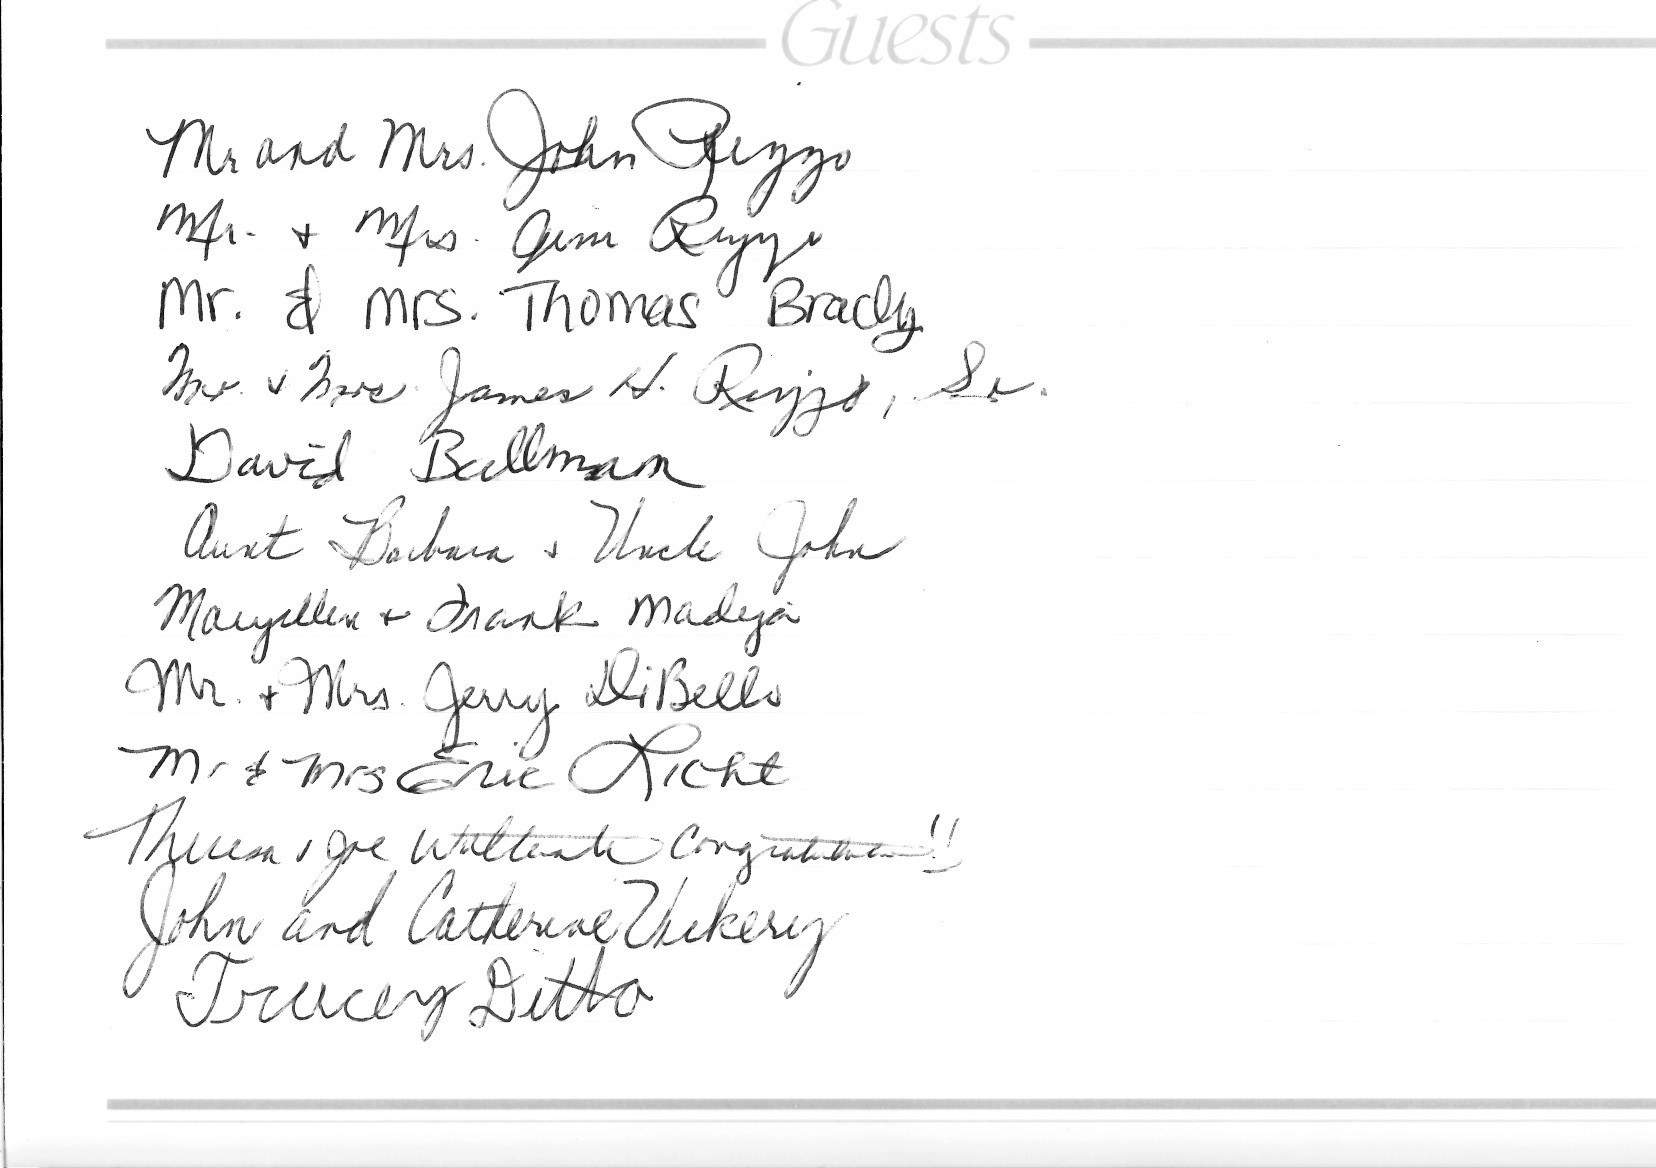 Guests
Mr and Mrs. John Rizzo
Mr. + Mrs. Jim Rizzo
Mr. & Mrs. Thomas Brady
Mr. + Mrs. James H. Rizzo, Sr.
David Bullman
Aunt Barbara + Uncle John
Maryellen + Frank Madeja
Mr. + Mrs. Jerry DiBello
Mr & Mrs Eric Licht
Theresa + Joe Congratulations!!
John and Catherine Vickery
Tracey Ditto